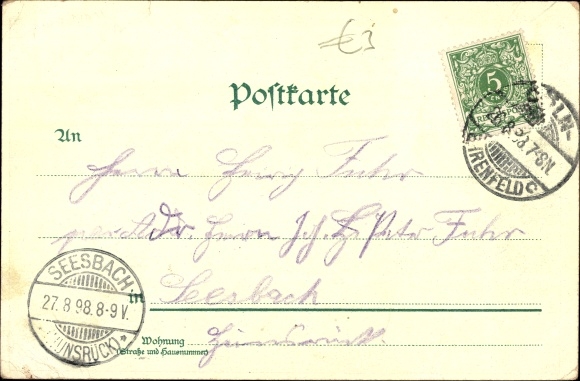 Postkarte
5
CÖLN-
26.8.98.7-8N.
EHRENFELD C
An
Herrn Fuhr
per Adr. Herrn Joh. Peter Fuhr
SEESBACH
27.8.98.8-9V.
(HUNSRÜCK)
in Seesbach
Wohnung
(Straße und Hausnummer)
Hunsrück.